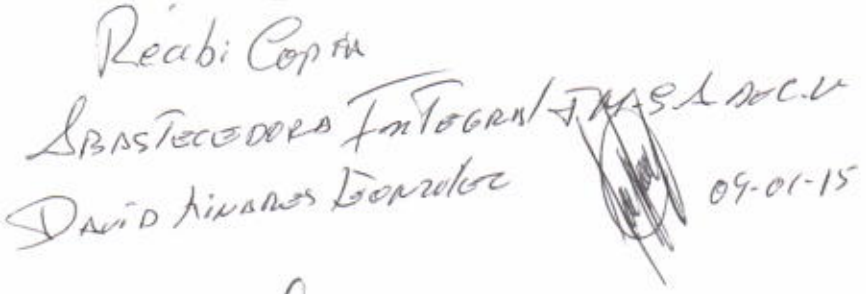 Recibi Copia
Abastecedora Integral JM S.A de C.V
David Linares Gonzalez 09-01-15